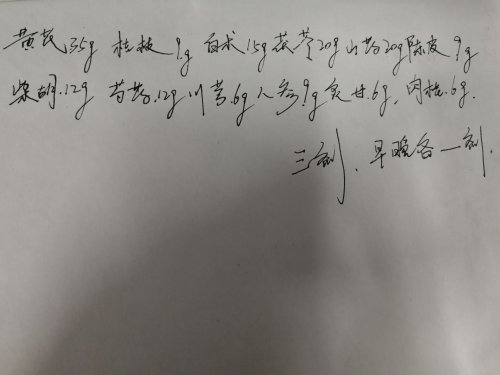 黄芪35g 桂枝9g 白术15g茯苓20g山药20g陈皮9g
柴胡.12g 芍药.12g川芎.6g人参9g炙甘.6g,肉桂.6g.
三剂、早晚各一剂.